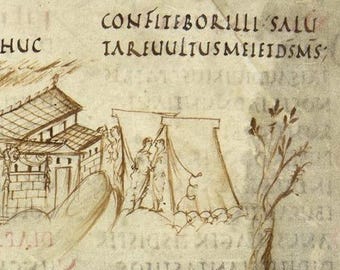 CONFITEBORILLI·SALU
HUC
TAREUULTUSMEIETDSMS;